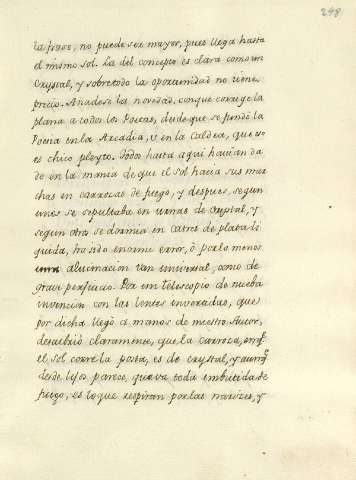 248
la frase, no puede ser mayor, pues llega hasta
el mismo sol. La del concepto es clara como un
Crystal, y sobre todo la oportunidad no tiene
precio. Añadese la novedad, con que corrige la
plana a todos los Poetas, desde que se fundò la
Poesia en la Arcadia, ù en la Caldea, que no
es chico pleyto. Todos hasta aqui havian da
do en la mania de que el sol hacia sus mar
chas en carrozas de fuego, y despues, segun
unos se sepultaba en urnas de Crystal, y
segun otros se dormia en catres de plata li
quida, ha sido enorme error, ò por lo menos
alucinacion tan universal, como de
gravi perjuicio. Por un telescopio de nueba
invencion con las lentes inversadas, que
por dicha llegò à manos de nuestro Autor,
descubriò claramente, que la carroza, en q.e
el sol corre la posta, es de crystal, y aunq.e
desde lejos parece, que va toda embutida de
fuego, es lo que respiran por las narizes, y